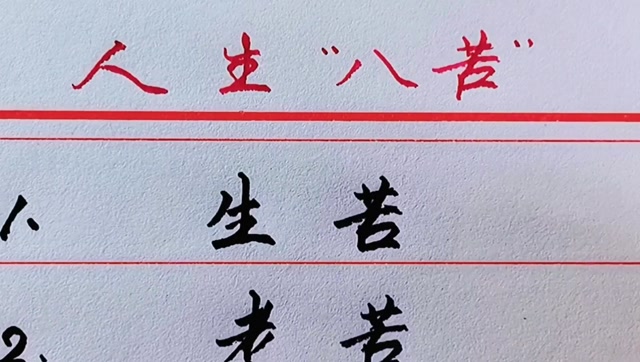 人生“八苦”
1、生苦
2、老苦